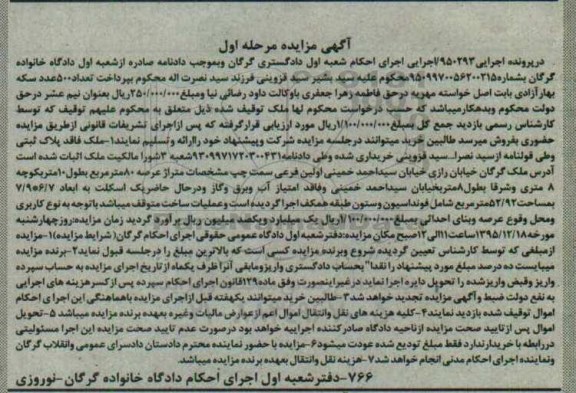 آگهی مزایده مرحله اول
درپرونده اجرایی۹۵۰۲۹۳/اجرایی اجرای احکام شعبه اول دادگستری گرگان وبموجب دادنامه صادره ازشعبه اول دادگاه خانواده
گرگان بشماره۹۵۰۹۹۷۰۰۵۶۲۰۰۳۱۵محکوم علیه سید شبیر سید قزوینی فرزند سید نصرت اله محکوم بپرداخت تعداد۵۰۰عدد سکه
بهارآزادی بابت اصل خواسته مهریه درحق فاطمه زهرا جعفری باوکالت داود رضائی نیا ومبلغ۲۵۰/۰۰۰/۰۰۰ریال بعنوان نیم عشر درحق
دولت محکوم وبدهکارمیباشد که حسب درخواست محکوم لها ملک توقیف شده ذیل متعلق به محکوم علیهم توقیف که توسط
کارشناس رسمی بازدید جمع کل بمبلغ۱/۱۰۰/۰۰۰/۰۰۰ریال مورد ارزیابی قرارگرفته که پس ازاجرای تشریفات قانونی ازطریق مزایده
حضوری بفروش میرسد طالبین خرید میتوانند درجلسه مزایده شرکت وپیشنهاد خود راارائه وتسلیم نمایند۱-ملک فاقد پلاک ثبتی
وطی قولنامه ازسید نصرا...سید قزوینی خریداری شده وطی دادنامه۹۳۰۹۹۷۱۷۲۰۳۰۰۴۳۱شعبه ۳شورا مالکیت ملک اثبات شده است
آدرس ملک گرگان خیابان رازی خیابان سیداحمد خمینی اولین فرعی سمت چپ مشخصات متراژ عرصه ۸۰مترمربع بطول۱۰متربکوچه
۸ متری وشرقا بطول۸متربخیابان سیداحمد خمینی وفاقد امتیاز آب وبرق وگاز ودرحال حاضریک اسکلت به ابعاد ۷/۹*۶/۷
بمساحت۵۲/۹۲مترمربع شامل فونداسیون وستون طبقه همکف اجراگردیده است وعملیات ساخت متوقف میباشد باتوجه به نوع کاربری
ومحل وقوع عرصه وبنای احداثی بمبلغ۱/۱۰۰/۰۰۰/۰۰۰ریال یک میلیارد ویکصد میلیون ریال برآورد گردید زمان مزایده:روزچهارشنبه
مورخه۱۳۹۵/۱۲/۱۸ساعت۱۱الی۱۲صبح مکان مزایده:دفترشعبه اول دادگاه عمومی حقوقی اجرای احکام گرگان(شرایط مزایده)۱-مزایده
ازمبلغی که توسط کارشناس تعیین گردیده شروع وبرنده مزایده کسی است که بالاترین مبلغ را درجلسه قبول نماید۲-برنده مزایده
میبایست ده درصد مبلغ مورد پیشنهاد را نقدا" بحساب دادگستری واریزومابقی آنرا ظرف یکماه ازتاریخ اجرای مزایده به حساب سپرده
واریز وقبض واریزشده را تحویل دایره اجرا نماید درغیراینصورت وفق ماده۱۲۹قانون اجرای احکام سپرده پس ازکسرهزینه های اجرایی
به نفع دولت ضبط وآگهی مزایده تجدید خواهد شد۳-طالبین خرید میتوانند یکهفته قبل ازاجرای مزایده باهماهنگی این اجرای احکام
اموال توقیف شده بازدید نمایند۴-کلیه هزینه های نقل وانتقال اموال اعم ازعوارض مالیات وغیره بعهده برنده مزایده میباشد ۵-تحویل
اموال پس ازتایید صحت مزایده ازناحیه دادگاه صادرکننده اجراییه خواهد بود درصورت عدم تایید صحت مزایده این اجرا مسئولیتی
دررابطه با خریدارندارد فقط مبلغ تودیع شده عودت میشود۶-مزایده با حضور نماینده محترم دادستان دادسرای عمومی وانقلاب گرگان
ونماینده اجرای احکام مدنی انجام خواهد شد۷-هزینه نقل وانتقال بعهده برنده مزایده میباشد.
۷۶۶-دفترشعبه اول اجرای احکام دادگاه خانواده گرگان -نوروزی